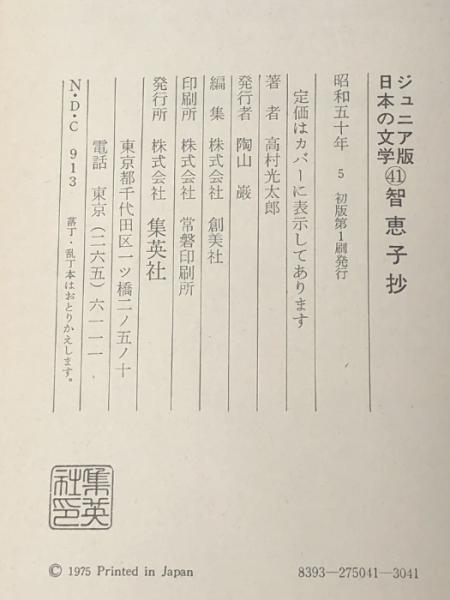 ジュニア版
日本の文学㊶智恵子抄
昭和五十年 5 初版第1刷発行
定価はカバーに表示してあります
著者 高村光太郎
発行者 陶山巌
編集 株式会社 創美社
印刷所 株式会社 常磐印刷所
発行所 株式会社 集英社
東京都千代田区一ツ橋二ノ五ノ十
電話 東京(二六五)六一一一
N・D・C 913 落丁・乱丁本はおとりかえします。
集英
社印
© 1975 Printed in Japan
8393-275041-3041